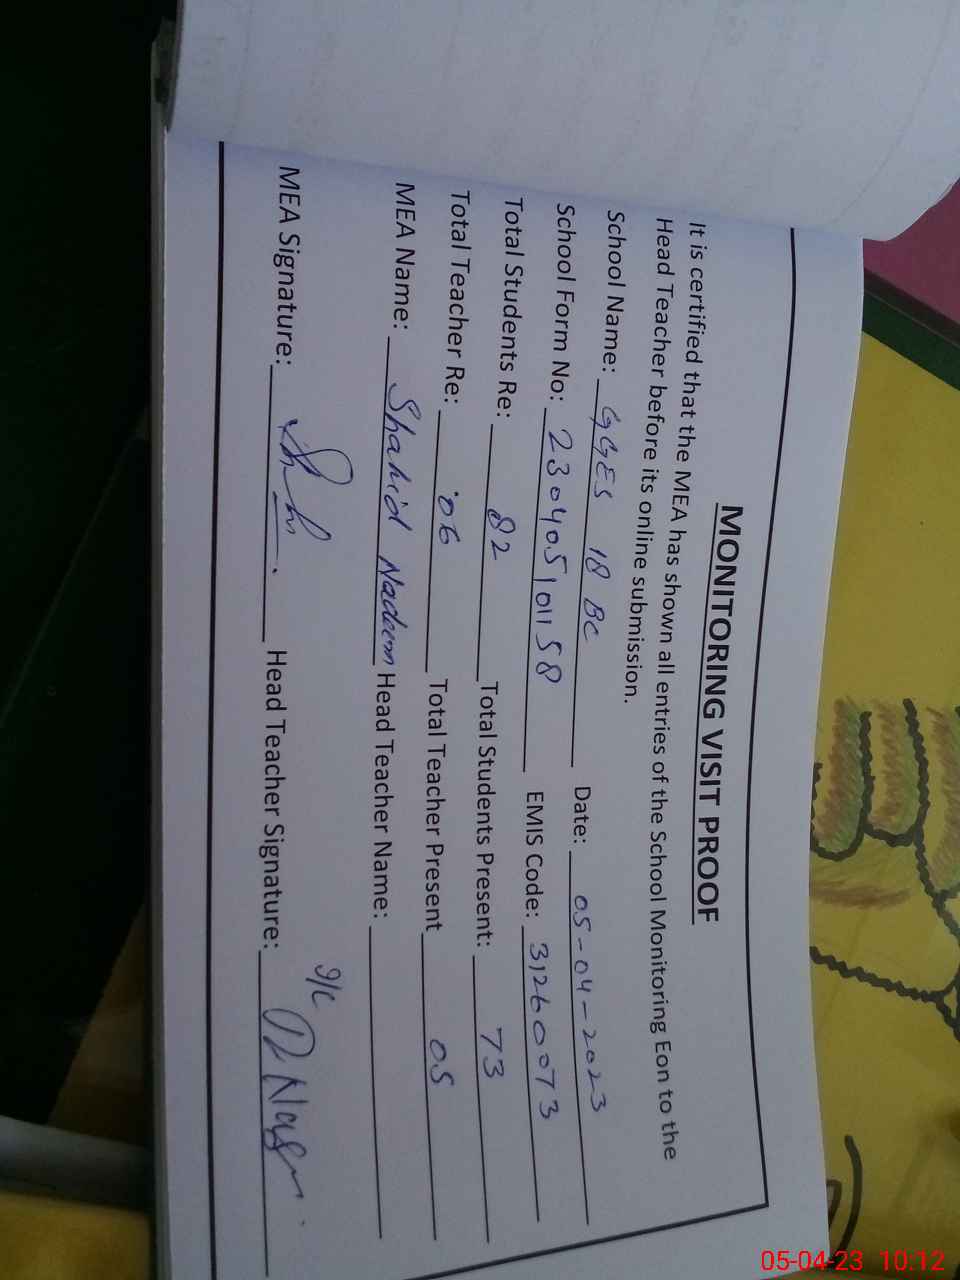 MONITORING VISIT PROOF
It is certified that the MEA has shown all entries of the School Monitoring Eon to the
Head Teacher before its online submission.
School Name: GGES 18 BC Date: 05-04-2023
School Form No: 230405101158 EMIS Code: 31260073
Total Students Re: 82 Total Students Present: 73
Total Teacher Re: 06 Total Teacher Present 05
MEA Name: Shahid Nadeem Head Teacher Name:
MEA Signature: Head Teacher Signature: I/C
05-04-23 10:12